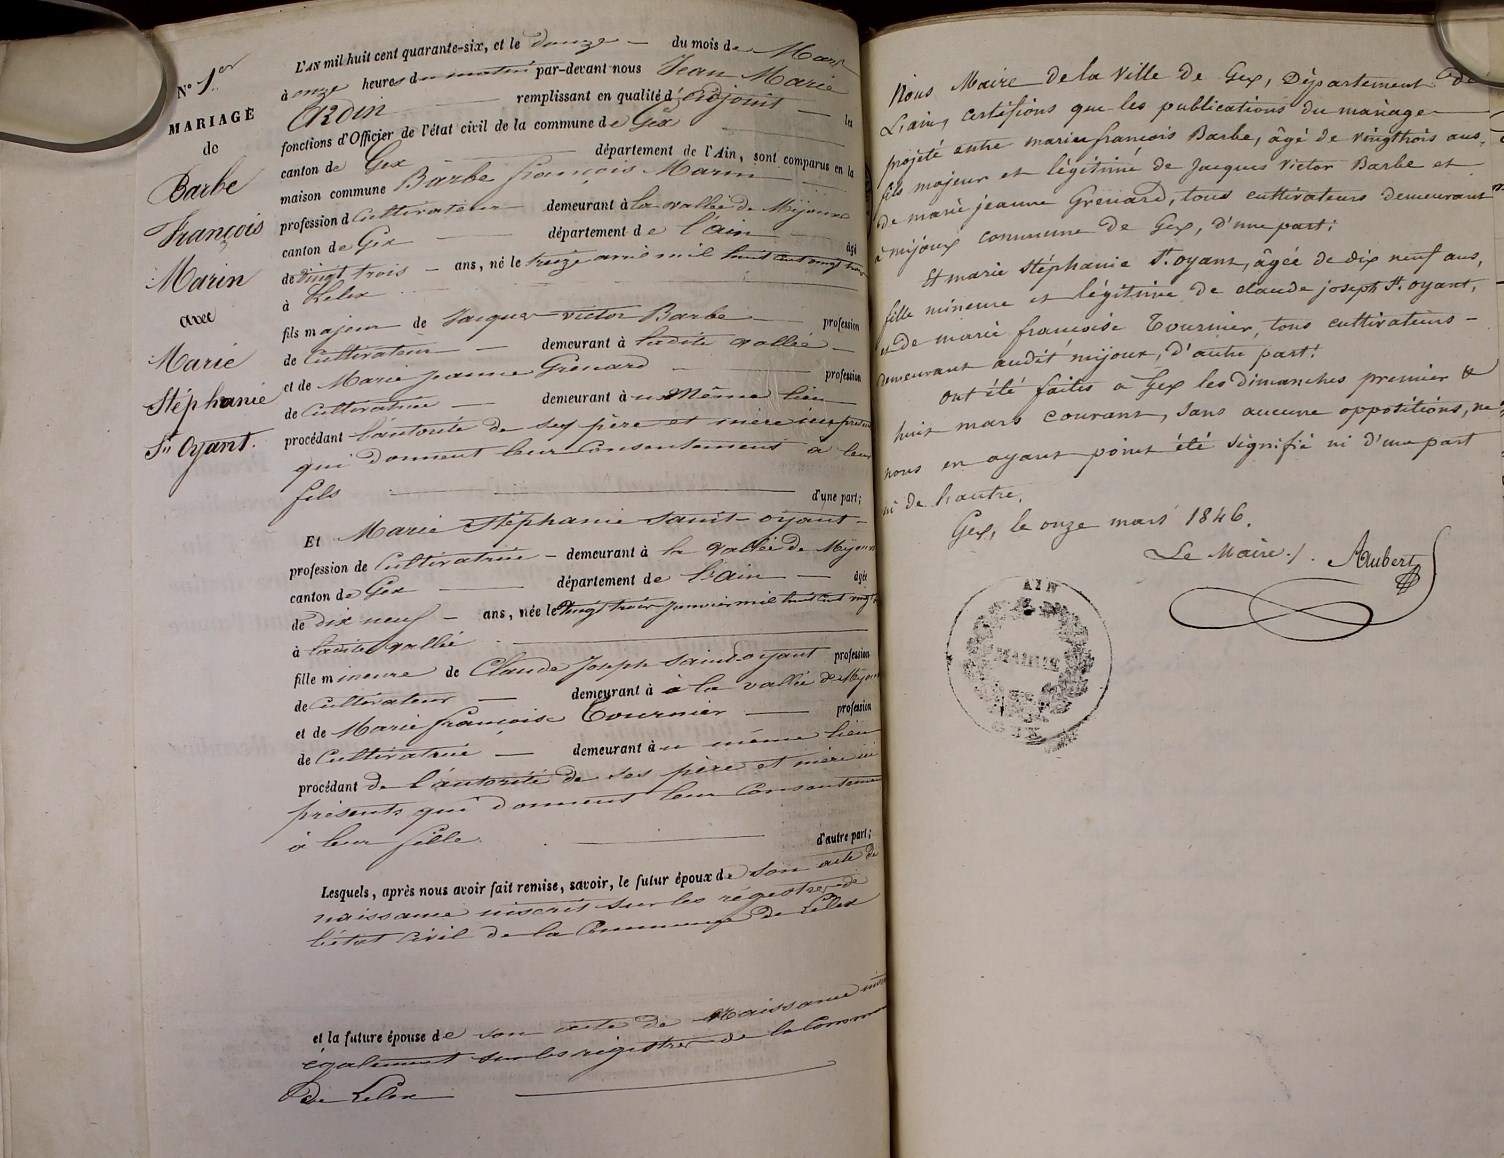 N° 1er
MARIAGE
de
Barbe
François
Marin
avec
Marie
Stéphanie
St Oyant.
L'AN mil huit cent quarante-six, et le douze du mois de Mars
à onze heures du matin par-devant nous Jean Marie
remplissant en qualité d'adjoint les
fonctions d'Officier de l'état civil de la commune de Gex
canton de Gex département de l'Ain, sont comparus en la
maison commune Barbe François Marin
profession d Cultivateur demeurant à la vallée de Mijoux
canton de Gex département de l'ain âgé
de vingt trois ans, né le treize avril mil huit cent vingt trois
à Lelex
fils majeur de Jacques Victor Barbe profession
de Cultivateur demeurant à ladite vallée
et de Marie Jeanne Grenard profession
de Cultivatrice demeurant à u Même lieu
procédant l'autorité de ses père et mère ici présents
qui donnent leur consentement à leur
fils d'une part;
Et Marie Stéphanie Saint-oyant
profession de Cultivatrice demeurant à la vallée de Mijoux
canton de Gex département de l'ain âgée
de Dix neuf ans, née le vingt trois janvier mil huit cent vingt
à ladite vallée
fille mineure de Claude Joseph Saint oyant profession
de Cultivateur demeurant à à la vallée de Mijoux
et de Marie françoise Tournier profession
de Cultivatrice demeurant à u même lieu
procédant de l'autorité de ses père et mère ici
présents qui donnent leur Consentement
à leur fille. d'autre part;
Lesquels, après nous avoir fait remise, savoir, le futur époux de son acte de
naissance inscrit sur les régistres de
l'état Civil de la Commune de Lelex
et la future épouse de son acte de Naissance inscrit
également sur les régistres de la Commune
de Lelex
Nous Maire de la Ville de Gex, Département de
L'ain, certifions que les publications du mariage
projeté entre marin françois Barbe, âgé de vingt trois ans,
fils majeur et légitime de Jacques Victor Barbe et
de marie jeanne Grenard, tous cultivateurs demeurant
à mijoux commune de Gex, d'une part;
Et marie Stéphanie St. oyant, âgée de dix neuf ans,
fille mineure et légitime de claude joseph St. oyant,
et de marie françoise Tournier, tous cultivateurs
demeurant audit mijoux, d'autre part;
ont été faites à Gex les dimanches premier &
huit mars courant, sans aucune oppositions, ne
nous en ayant point été signifié ni d'une part
ni de l'autre.
Gex, le onze mars 1846.
Le Maire, Aubert
AIN
MAIRIE
GEX